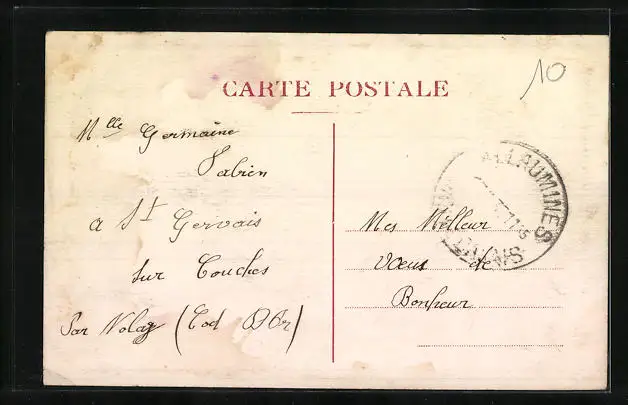 CARTE POSTALE
10
Mlle Germaine
Fabien
a St Gervais
sur Couches
Par Nolay (Cod D'Or)
Mes Meilleur
Vœus de
Bonheur
ALLAUMINES